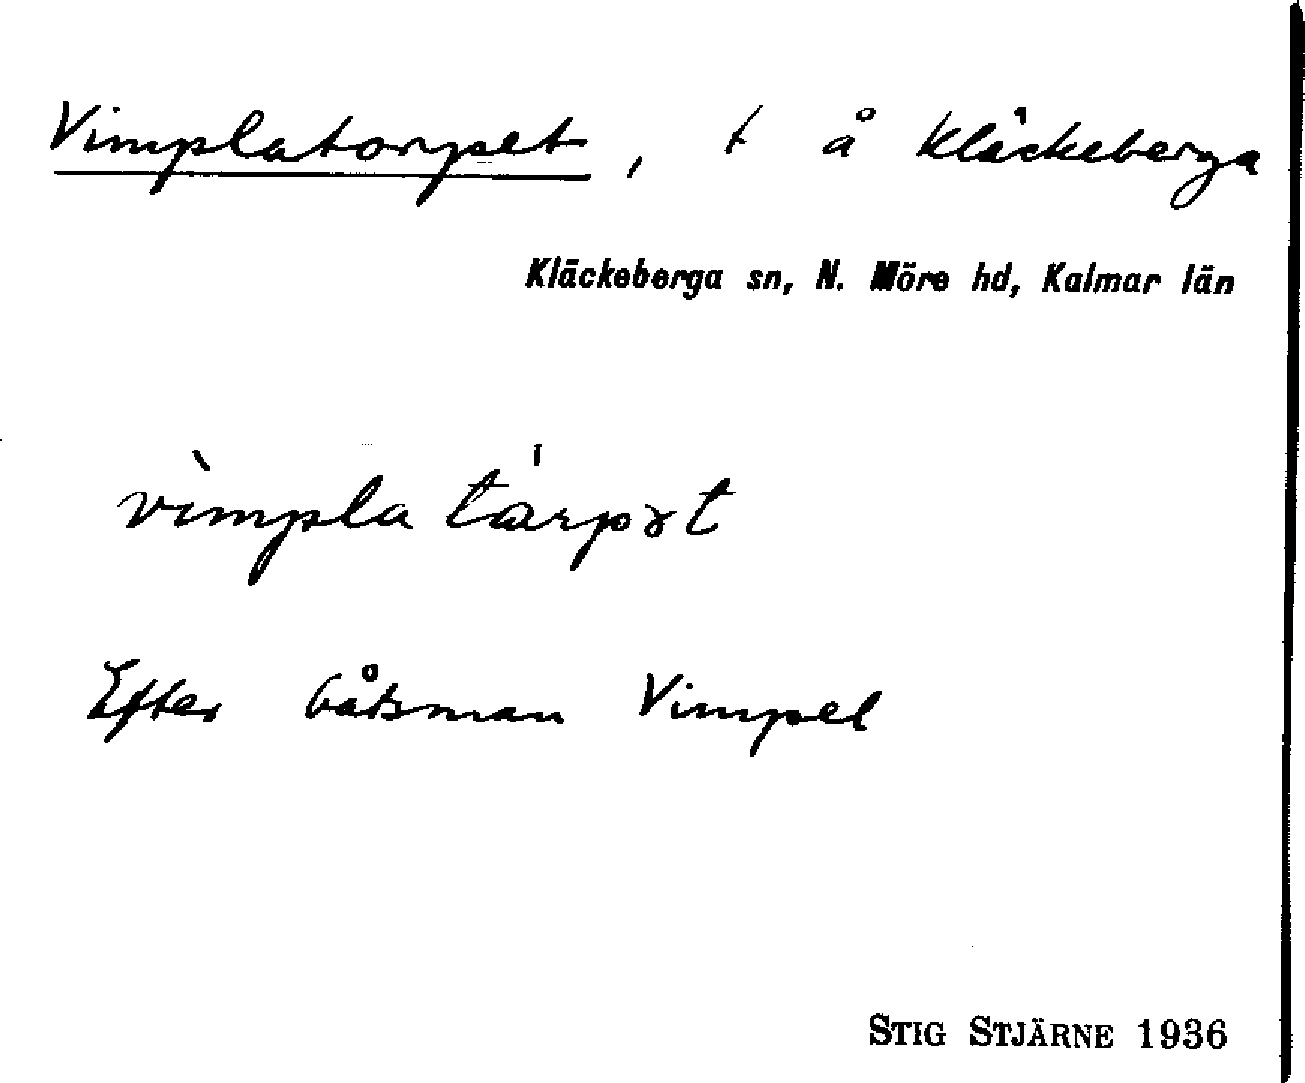 Vimplatorpet, t å Kläckeberga
Kläckeberga sn, N. Möre hd, Kalmar län
vìmpla tárpət
Efter båtsman Vimpel
STIG STJÄRNE 1936